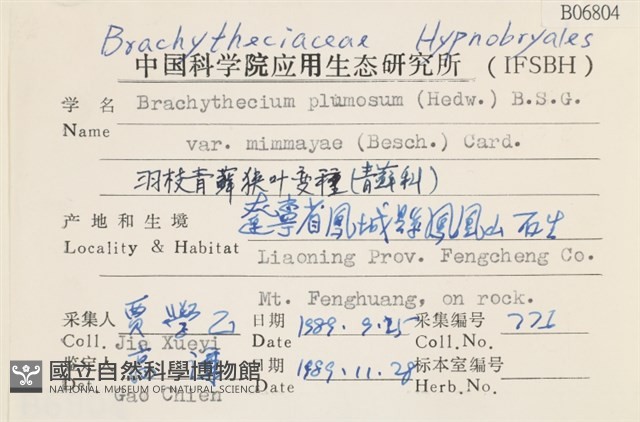 B06804
Brachytheciaceae Hypnobryales
中国科学院应用生态研究所 (IFSBH)
学名 Brachythecium plumosum (Hedw.) B.S.G.
Name
var. mimmayae (Besch.) Card.
羽枝青藓狭叶变種(青藓科)
产地和生境 遼寧省鳳城縣鳳凰山 石生
Locality & Habitat Liaoning Prov. Fengcheng Co.
Mt. Fenghuang, on rock.
采集人 賈學乙 日期 1989.9.25 采集编号 771
Coll. Jia Xueyi Date Coll.No.
鉴定人 高谦 日期 1989.11.28 标本室编号
Det. Gao Chien Date Herb.No.
國立自然科學博物館
NATIONAL MUSEUM OF NATURAL SCIENCE